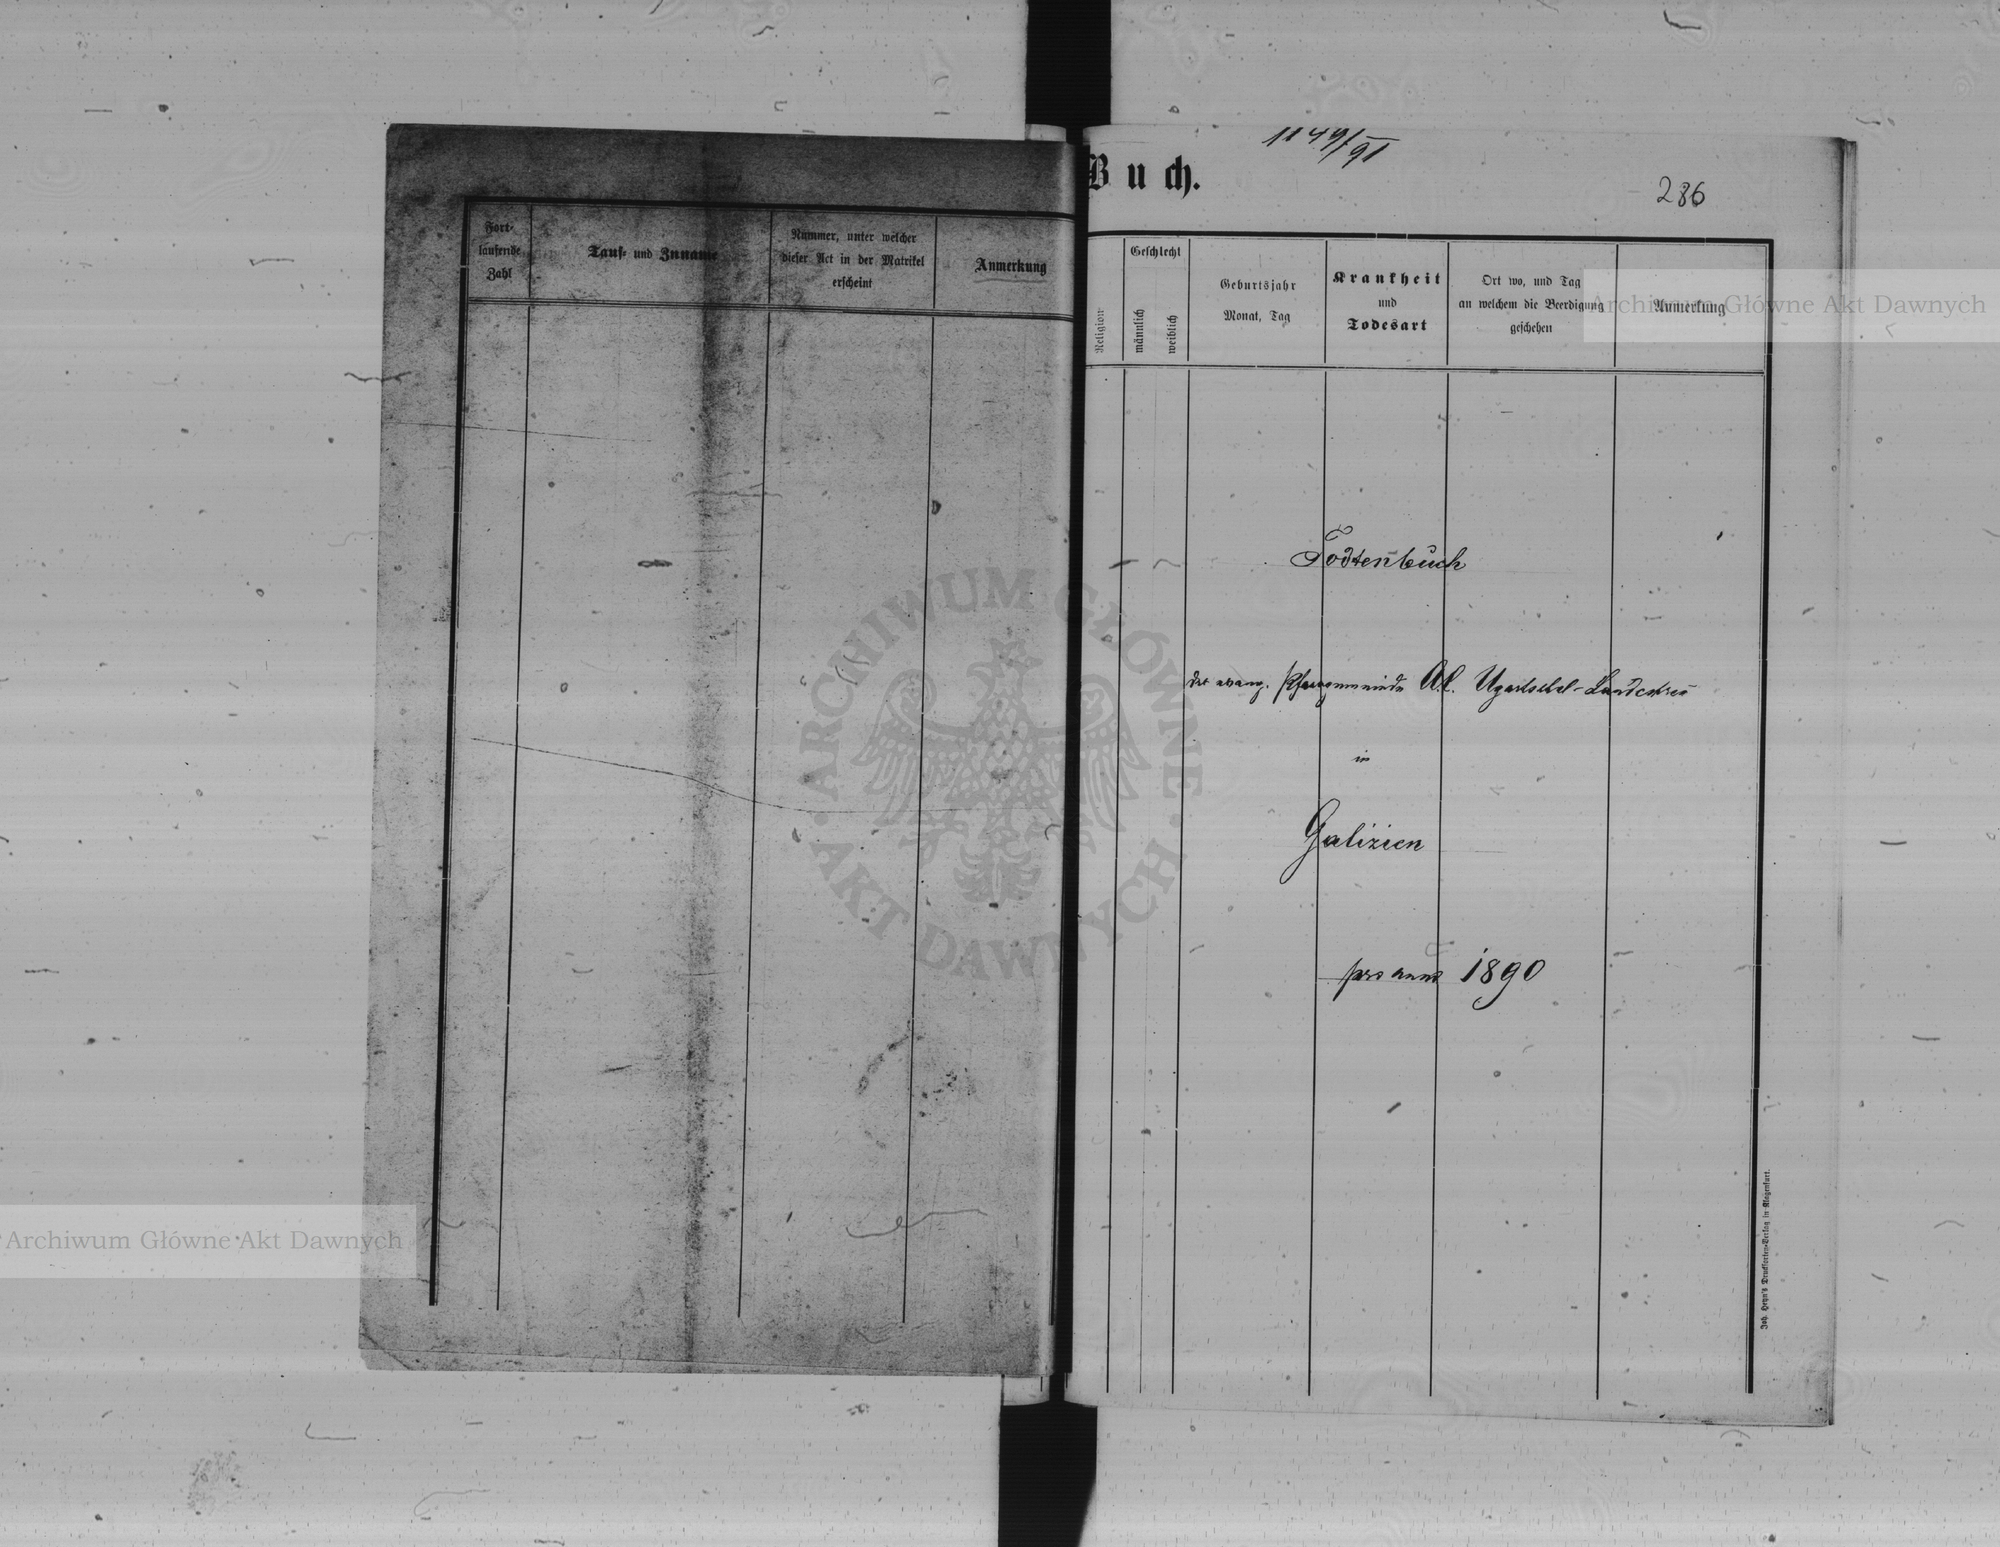 Fort-
laufende
Zahl
Tauf- und Zuname
Nummer, unter welcher
dieser Act in der Matrikel
erscheint
Anmerkung
1149/91
Buch.
286
Religion
Geschlecht
männlich
weiblich
Geburtsjahr
Monat, Tag
Krankheit
und
Todesart
Ort wo, und Tag
an welchem die Beerdigung
geschehen
Anmerkung
Todtenbuch
der evang. Pfarrgemeinde A.C. Ugartsthal-Landestreu
in
Galizien
pro anno 1890
Joh. Heyn's Drucksorten-Verlag in Klagenfurt.
Archiwum Główne Akt Dawnych
ARCHIWUM GŁÓWNE AKT DAWNYCH
Archiwum Główne Akt Dawnych